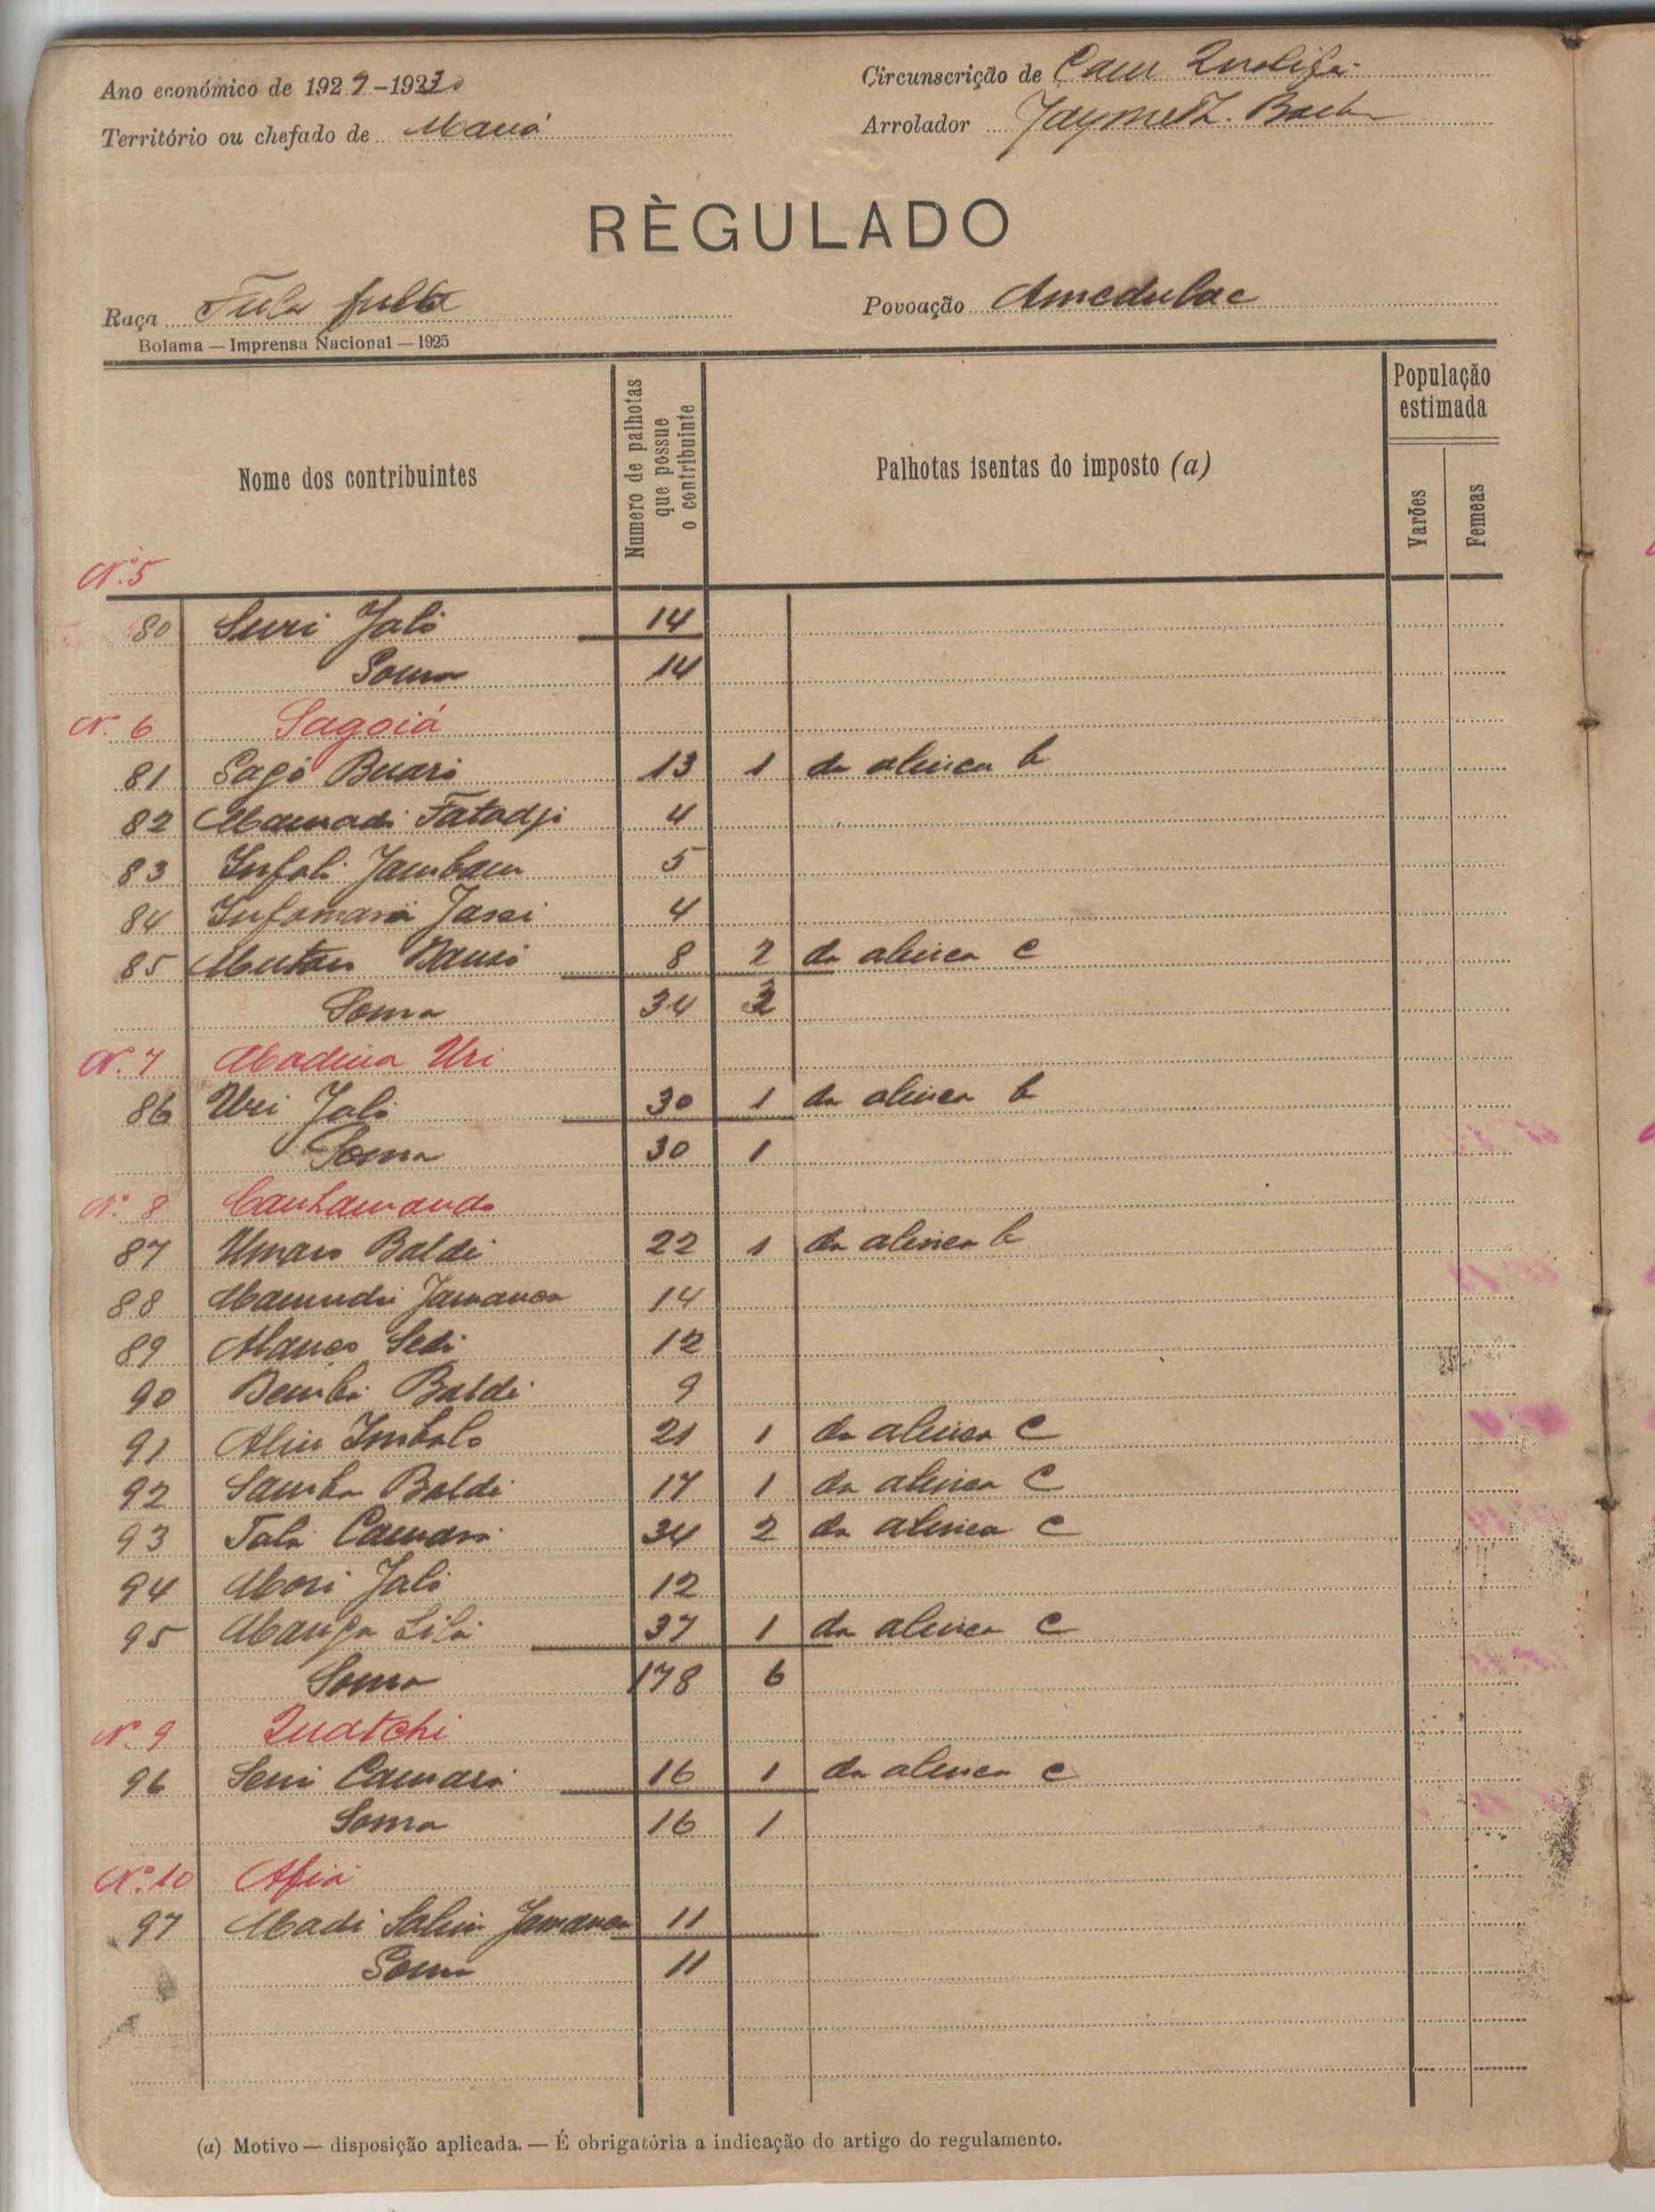 Ano económico de 1929-1930
Circunscrição de
Território ou chefado de Maná
Arrolador Jayme
RÈGULADO
Raça Fula fulla
Povoação Amedulae
Bolama — Imprensa Nacional — 1925
Nome dos contribuintes
Numero de palhotas que possue o contribuinte
Palhotas isentas do imposto (a)
População estimada
Varões
Femeas
N.º 5
80 Suri Jaló 14
Soma 14
N. 6 Sagoiá
81 Sagó Buaró 13 1 da alinea b
82 Mamadi Fatadji 4
83 Infali Jambam 5
84 Infamará Jassi 4
85 8 2 da alinea c
Soma 34 3
N. 7 Madina Uri
86 Uri Jaló 30 1 da alinea b
Soma 30 1
N.º 8 Canhamando
87 Umaro Baldé 22 1 da alinea b
88 Mamudu Jamanca 14
89 12
90 Demba Baldé 9
91 Aliu Imbaló 21 1 da alinea c
92 Samba Baldé 17 1 da alinea c
93 Talá Camará 34 2 da alinea c
94 Mori Jaló 12
95 Manga 37 1 da alinea c
Soma 178 6
N. 9 Quatchi
96 Seni Camará 16 1 da alinea c
Soma 16 1
N.º 10 Afiá
97 Madi Jamanca 11
Soma 11
(a) Motivo — disposição aplicada. — É obrigatória a indicação do artigo do regulamento.